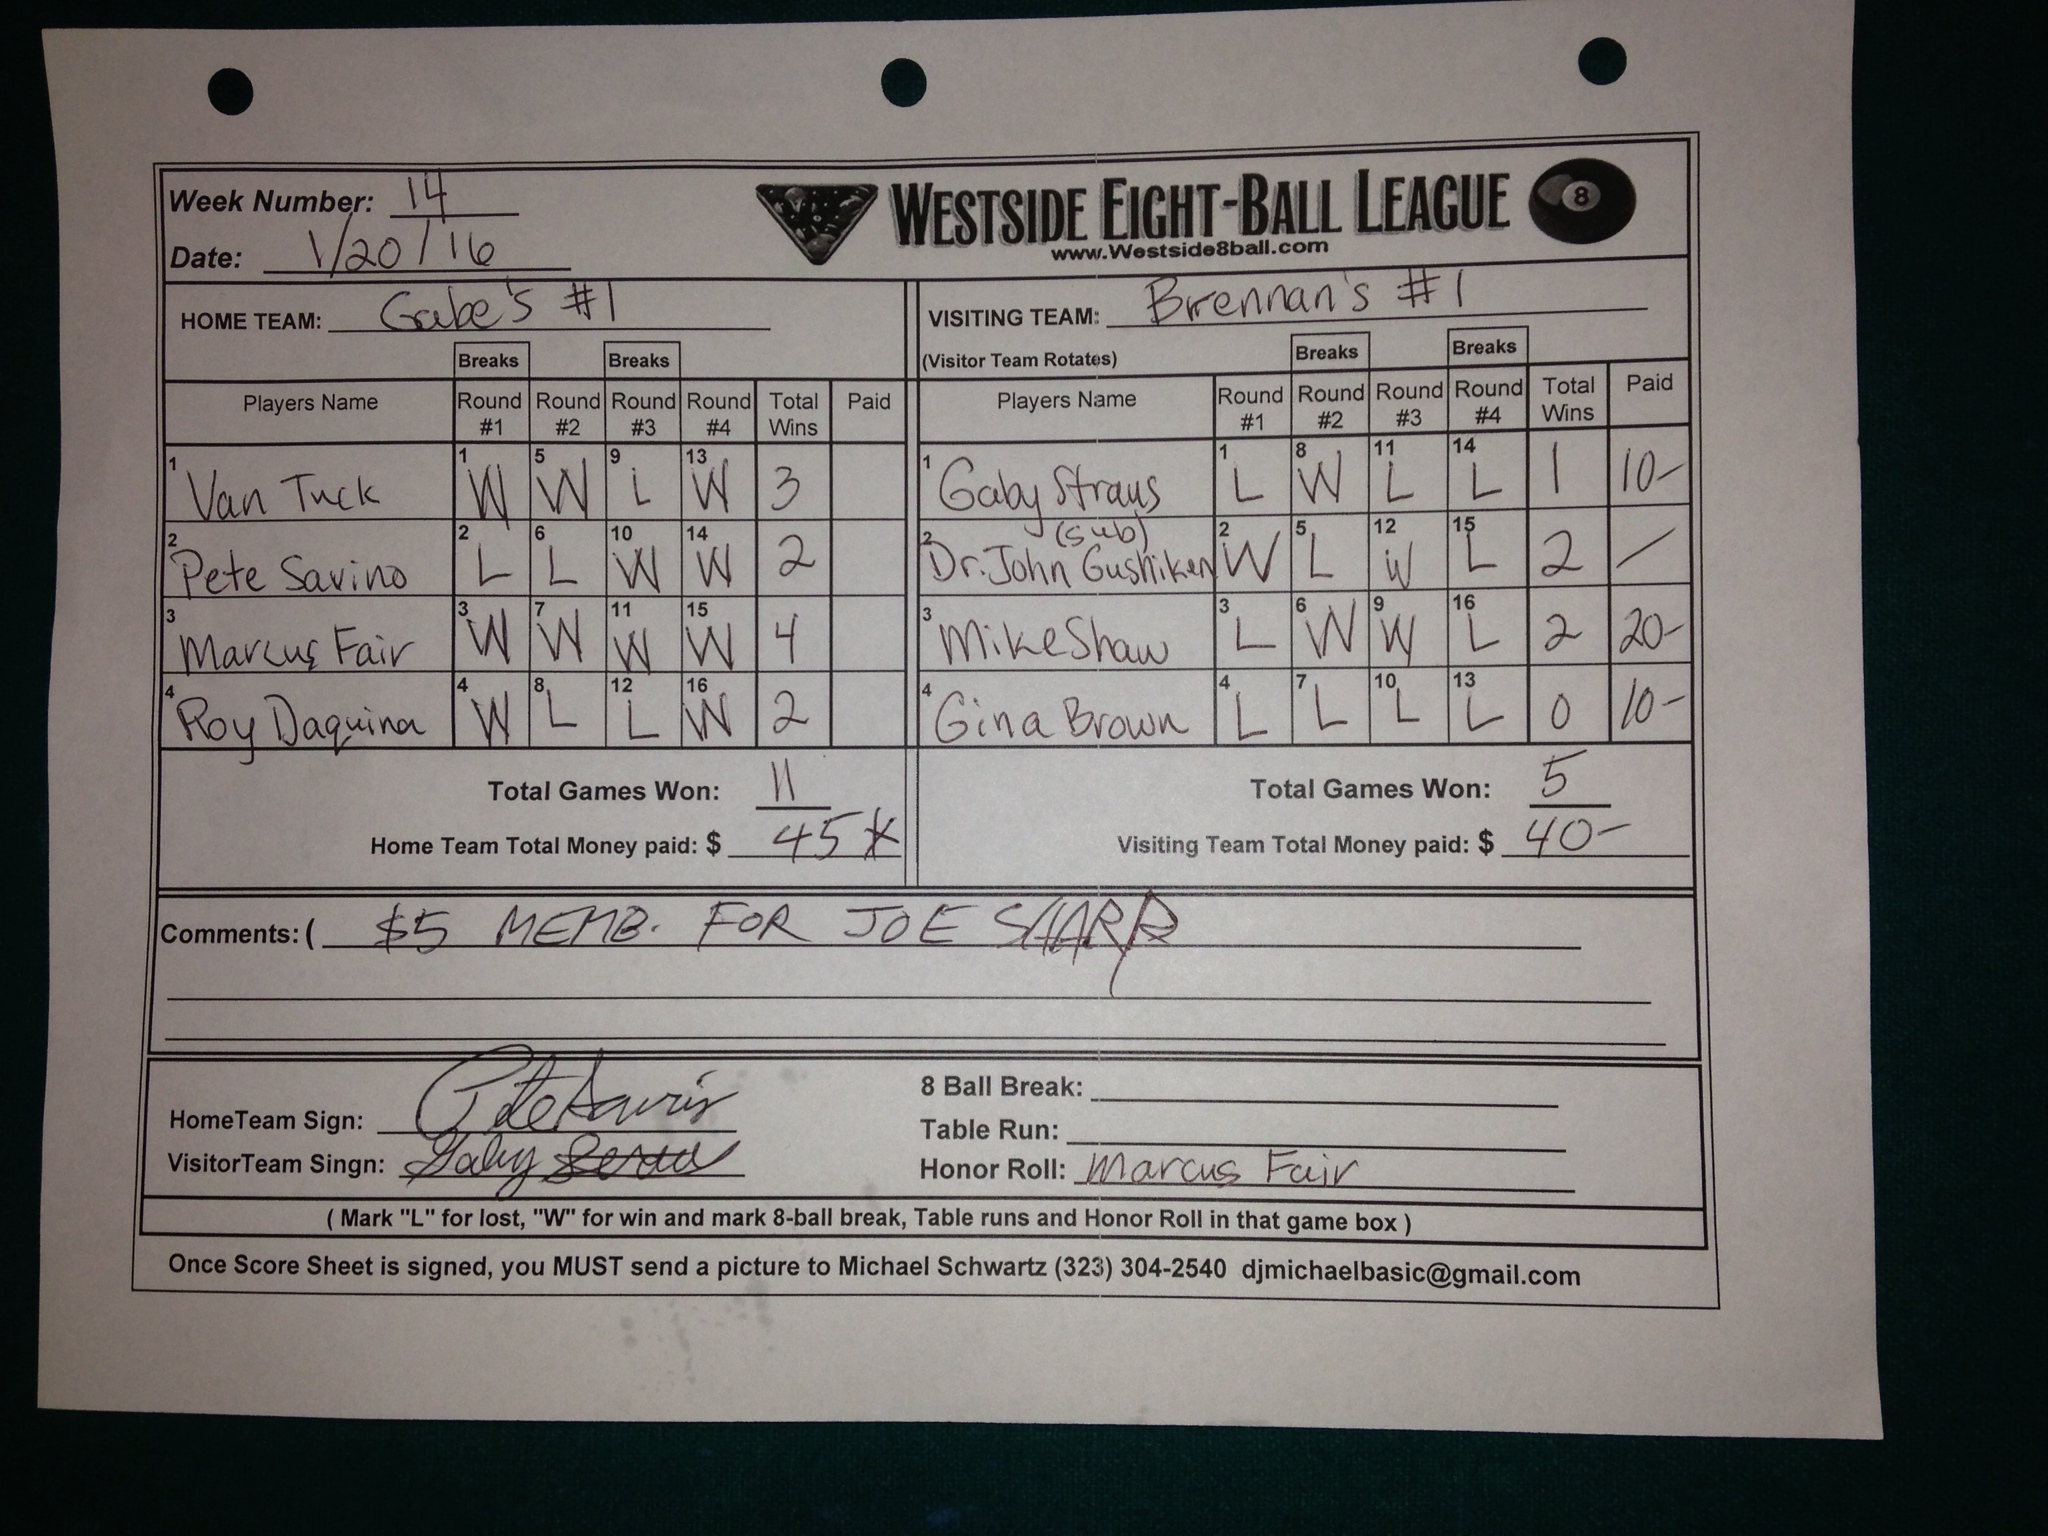 Week Number: 14
Date: 1/20/16
WESTSIDE EIGHT-BALL LEAGUE
8
www.Westside8ball.com
HOME TEAM: Gabe's #1
VISITING TEAM: Brennan's #1
Breaks Breaks
(Visitor Team Rotates) Breaks Breaks
Players Name Round #1 Round #2 Round #3 Round #4 Total Wins Paid
1 Van Tuck 1 W 5 W 9 L 13 W 3
2 Pete Savino 2 L 6 L 10 W 14 W 2
3 Marcus Fair 3 W 7 W 11 W 15 W 4
4 Roy Daquina 4 W 8 L 12 L 16 W 2
Total Games Won: 11
Home Team Total Money paid: $ 45*
Players Name Round #1 Round #2 Round #3 Round #4 Total Wins Paid
1 Gaby Straus 1 L 8 W 11 L 14 L 1 10-
(sub)
2 Dr. John Gushiken 2 W 5 L 12 W 15 L 2 /
3 Mike Shaw 3 L 6 W 9 W 16 L 2 20-
4 Gina Brown 4 L 7 L 10 L 13 L 0 10-
Total Games Won: 5
Visiting Team Total Money paid: $ 40-
Comments: ( $5 MEMB. FOR JOE SHARP
HomeTeam Sign: Pete Savino
VisitorTeam Singn: Gaby
8 Ball Break:
Table Run:
Honor Roll: Marcus Fair
( Mark "L" for lost, "W" for win and mark 8-ball break, Table runs and Honor Roll in that game box )
Once Score Sheet is signed, you MUST send a picture to Michael Schwartz (323) 304-2540 djmichaelbasic@gmail.com